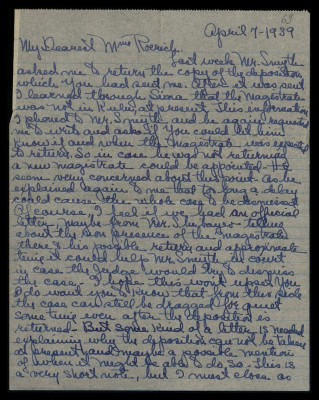 63
April 7-1939
My Dearest Mme Roerich,
Last week Mr. Smyth
asked me to return the copy of the deposition
which You had sent me. After it was sent
I learned through Sina that the Magistrate
was not in Kulu, at present. This information
I phoned to Mr. Smyth, and he again requested
me to write and ask if You could let him
know if and when the Magistrate was expected
to return. So in case he was not returned
a new magistrate could be appointed - He
seem very concerned about this point as he
explained again to me that too long a delay
could cause the whole case to be dismissed
Of course, I feel if we had an official
letter, maybe from Mr. telling
about the non presence of the magistrate
there & his possible return, and approximate
time it could help Mr. Smyth in court
in case the Judge would try to dismiss
the case. - I hope this won't upset You
I do want You to know that from this side
the case can still be dragged for quiet
some time even after the deposition is
returned - But some kind of a letter, is needed
explaining why the deposition can not be taken
at present, and maybe a possible mention
of when it might be able to do so - This is
a very short note, but I must close as